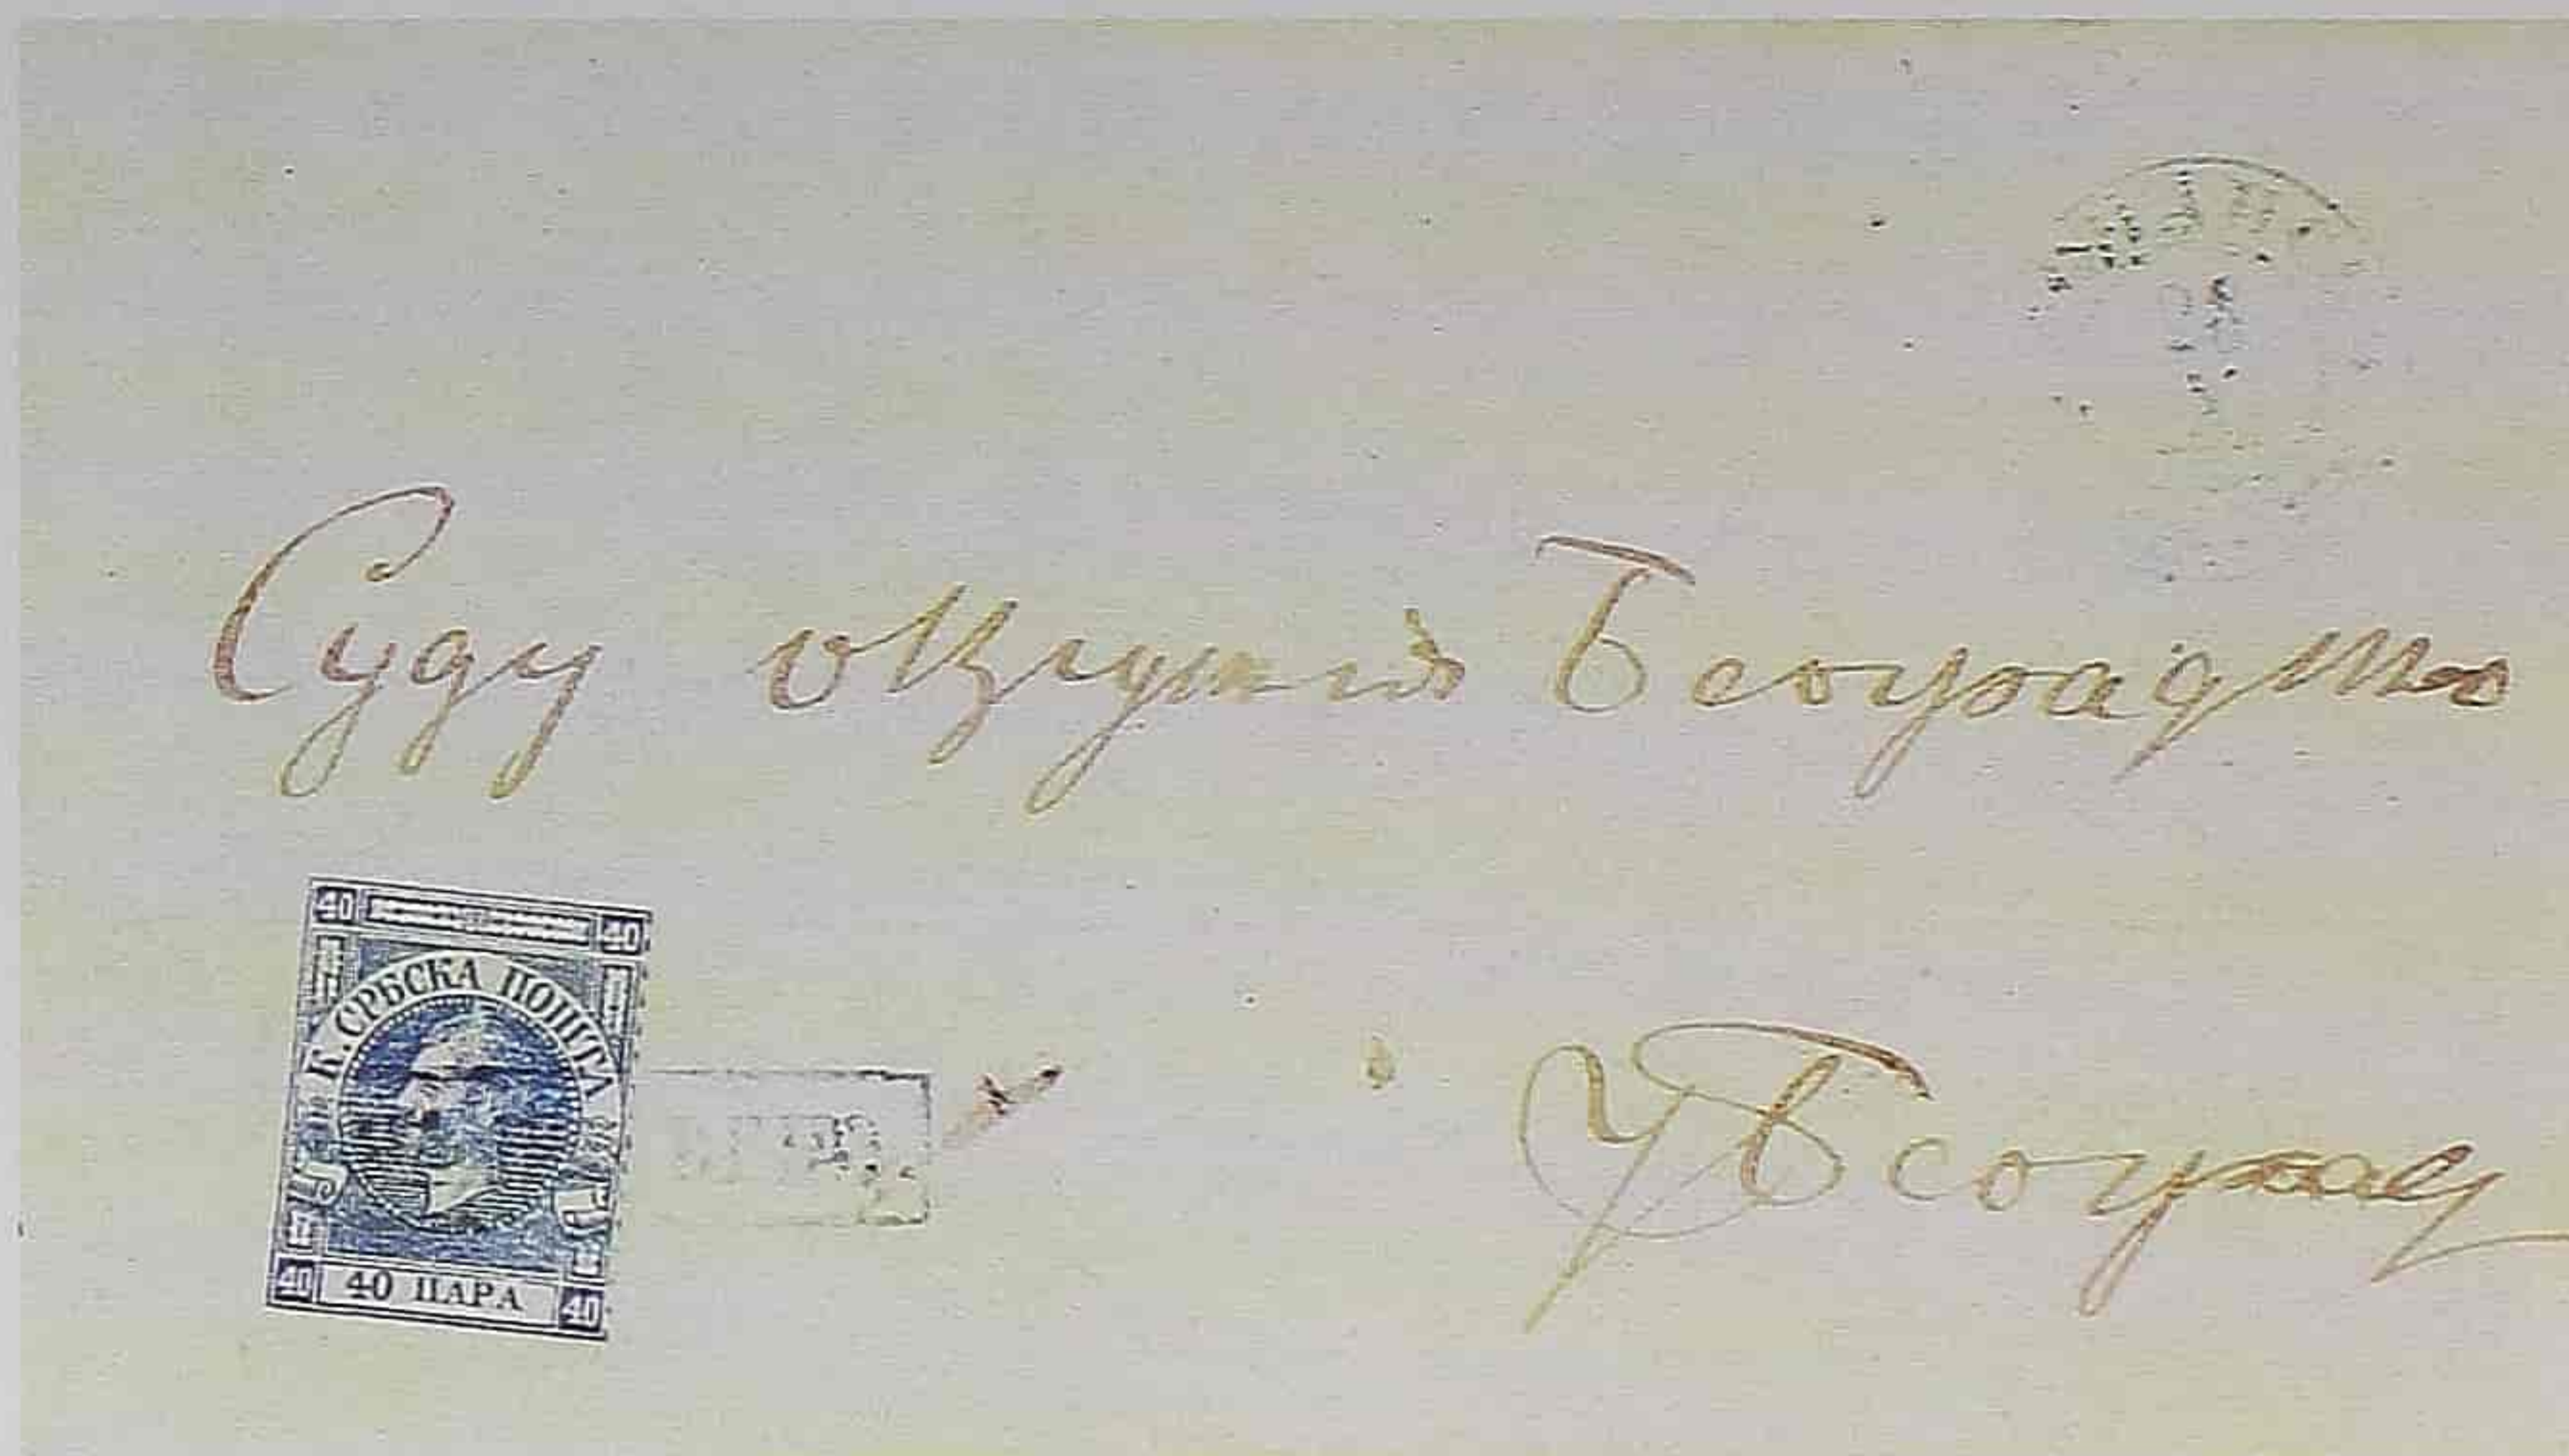 Суду окружія Београдског
40 40
К. СРБСКА ПОШТА
40 40 ПАРА 40
У Београд